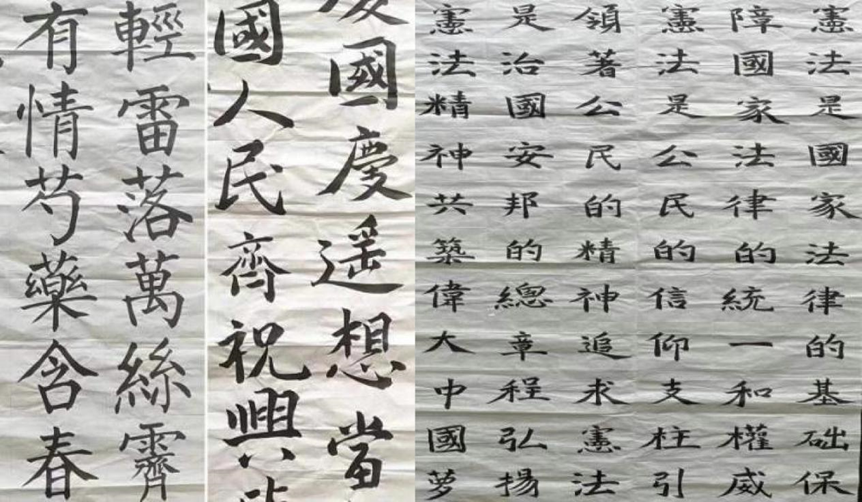 輕雷落萬絲霽
有情芍藥含春
國慶遙想當
國人民齊祝興
憲法是國家法律的基础保
障國家法律的統一和權威
憲法是公民的信仰支柱引
領著公民的精神追求憲法
是治國安邦的總章程弘揚
憲法精神共築偉大中國夢